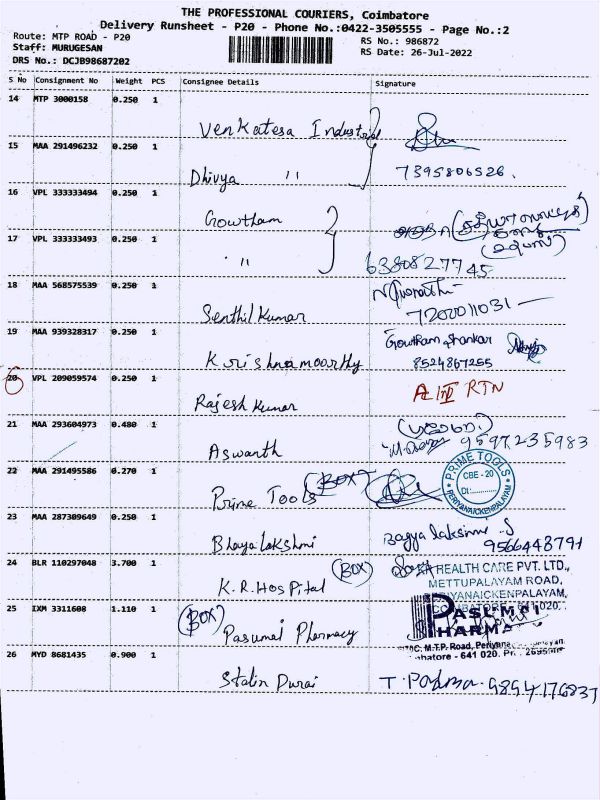 THE PROFESSIONAL COURIERS, Coimbatore
Delivery Runsheet - P20 - Phone No.:0422-3505555 - Page No.:2
Route: MTP ROAD - P20
RS No.: 986872
Staff: MURUGESAN
RS Date: 26-Jul-2022
DRS No.: DCJB98687202
S No Consignment No Weight PCS Consignee Details Signature
14 MTP 3000158 0.250 1
Venkatesa Industrial
15 MAA 291496232 0.250 1
Dhivya " 7395806526.
16 VPL 333333494 0.250 1
Gowtham
17 VPL 333333493 0.250 1
" 6380827745
18 MAA 568575539 0.250 1
Senthil Kumar 7200011031
19 MAA 939328317 0.250 1
Gowtham Shankar
Krishnamoorthy 8524867255
20 VPL 209059574 0.250 1
RTN
Rajesh Kumar
21 MAA 293604973 0.480 1
Aswanth 9597235983
22 MAA 291495586 0.270 1
Prime Tools (BOX)
PRIME TOOLS
CBE - 20
Dt:
PERIYANAICKENPALAYAM
23 MAA 287309649 0.250 1
Bagya laksmi S
Bhagalakshmi 9566448791
24 BLR 110297048 3.700 1
K.R. Hospital (BOX)
HEALTH CARE PVT. LTD.,
METTUPALAYAM ROAD,
25 IXM 3311608 1.110 1
(BOX) Pasumai Pharmacy
PASUMAI
M.T.P. Road,
641 020.
26 MYD 8681435 0.900 1
Stalin Durai T. Padma. 9894176837